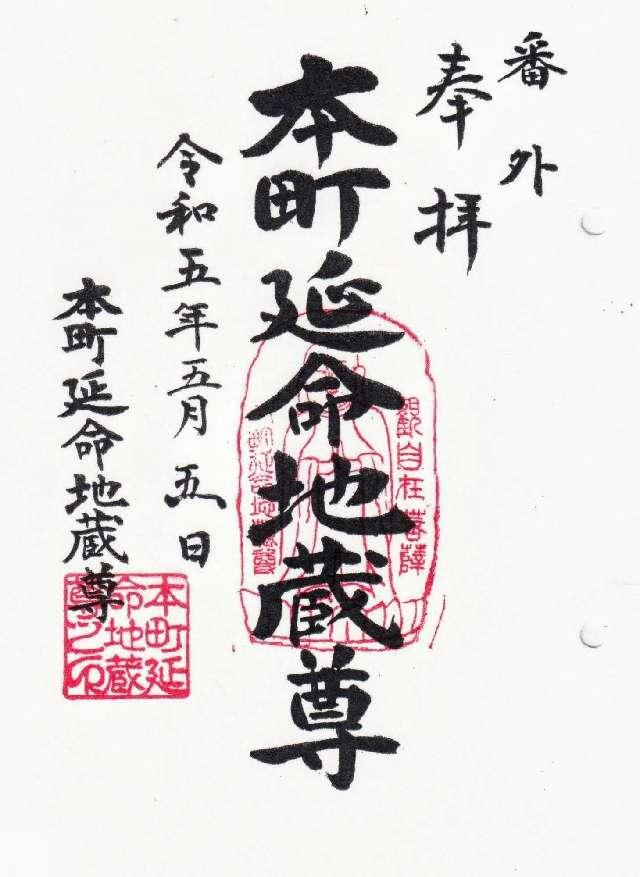 番外
奉拝
本町延命地蔵尊
令和五年五月五日
本町延命地蔵尊
観自在菩薩
本町延
命地蔵
尊之印